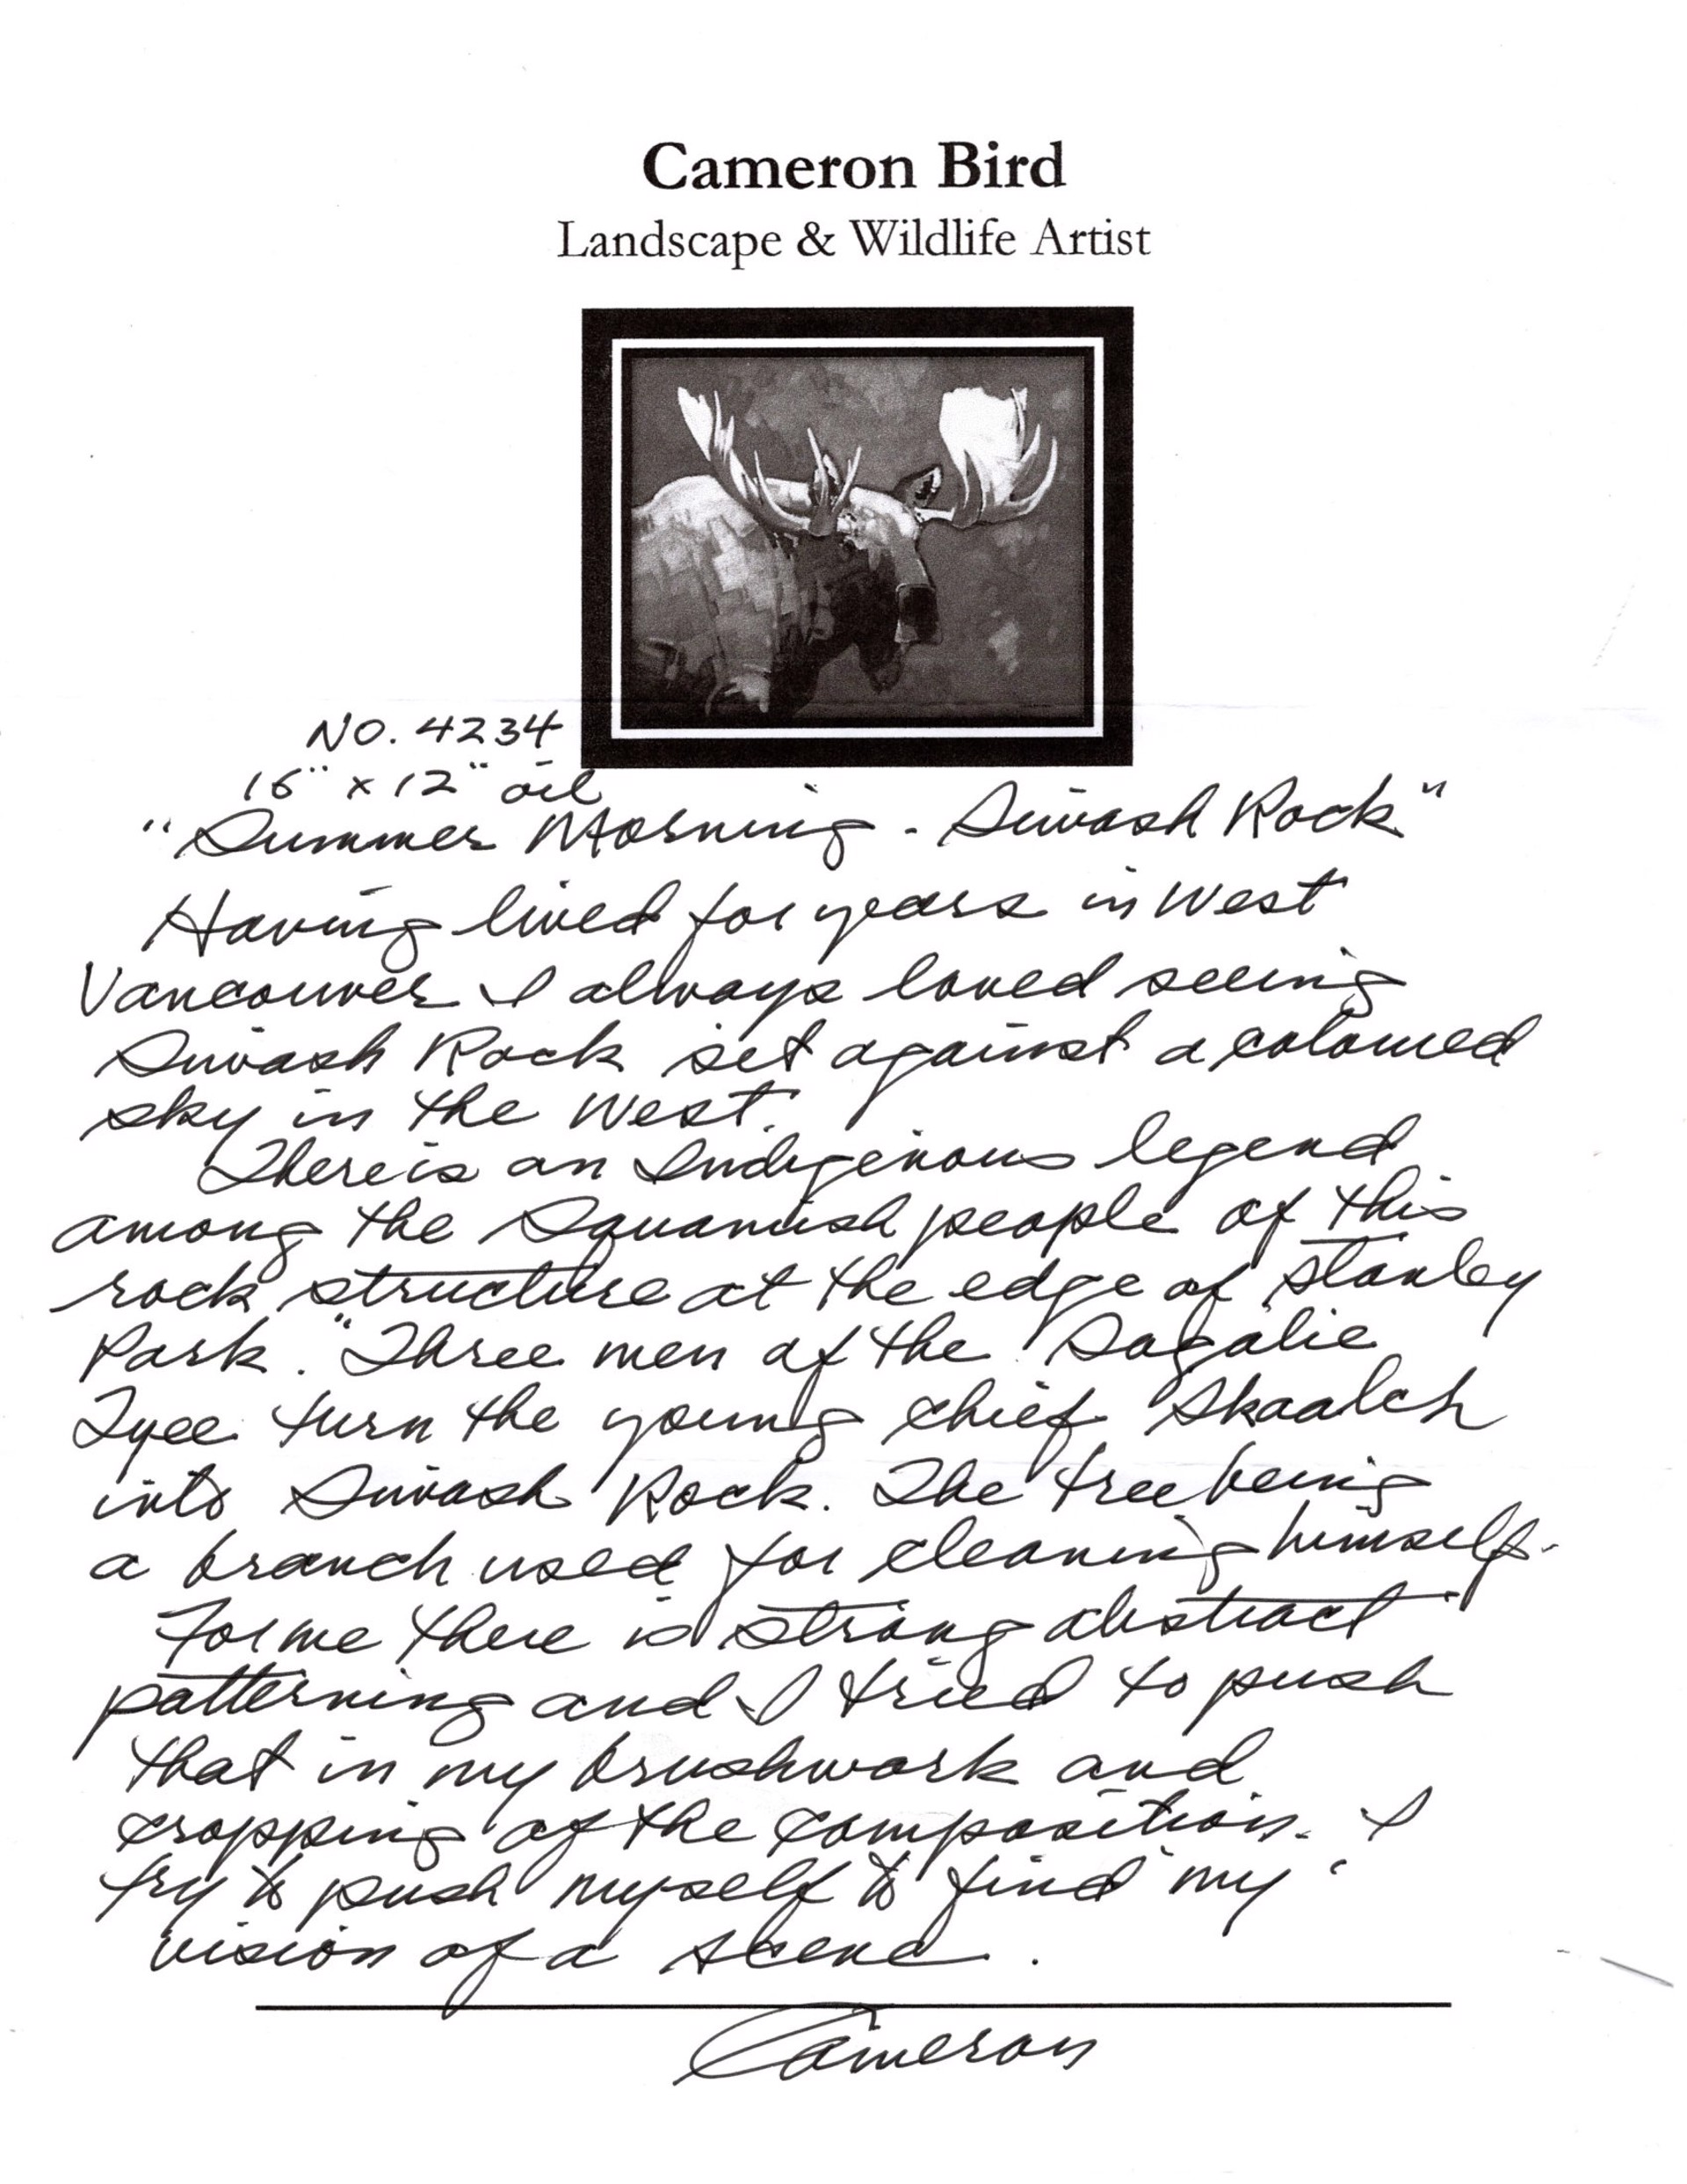 Cameron Bird
Landscape & Wildlife Artist
NO. 4234
16" x 12" oil
"Summer Morning - Siwash Rock"
Having lived for years in West
Vancouver I always loved seeing
Siwash Rock set against a coloured
sky in the West.
There is an Indigenous legend
among the Squamish people of this
rock structure at the edge of Stanley
Park. "Three men of the Sagalie
Tyee turn the young chief Skaalsh
into Siwash Rock. The tree being
a branch used for cleaning himself.
For me there is strong abstract
patterning and I tried to push
that in my brushwork and
cropping of the composition. I
try to push myself to find "my"
vision of a scene.
Cameron